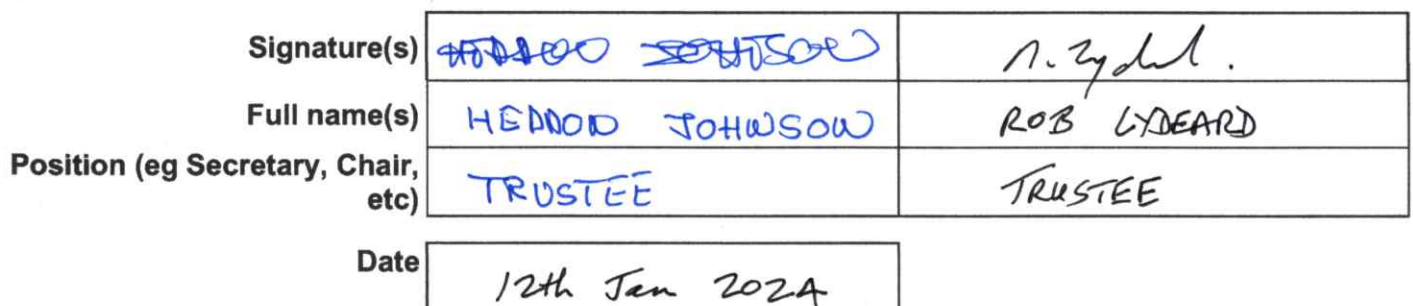 Signature(s) R. Lydeard.
Full name(s) HEDDON JOHNSON ROB LYDEARD
Position (eg Secretary, Chair, etc) TRUSTEE TRUSTEE
Date 12th Jan 2024